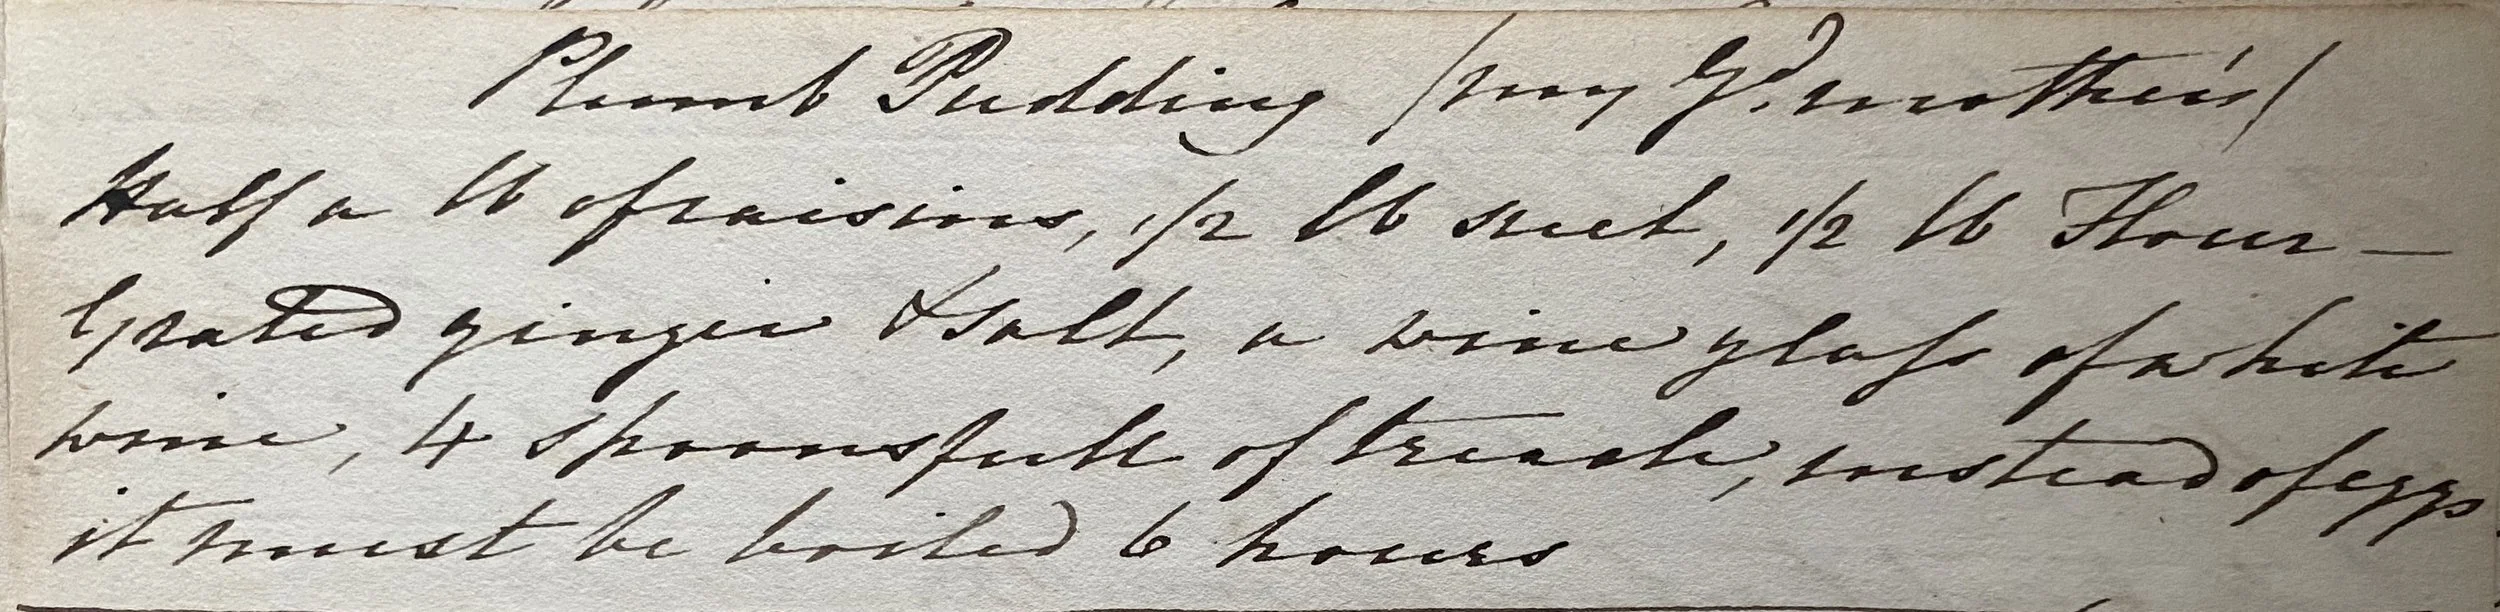 Plumb Pudding /my Gd. mother's/
Half a lb of raisins, 1/2 lb suet, 1/2 lb Flour —
Grated ginger & salt, a wine glass of white
wine, 4 spoonsfull of treacle, instead of eggs
it must be boiled 6 hours